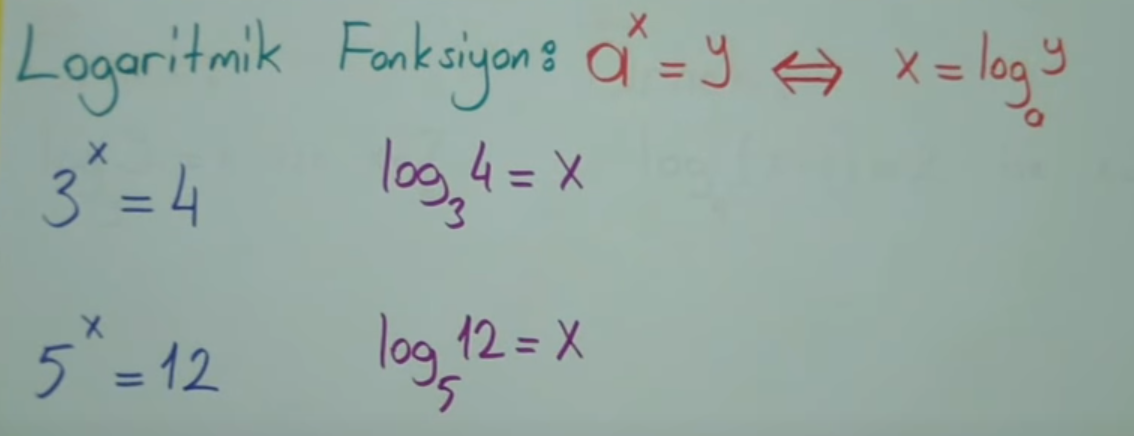 Logaritmik Fonksiyon: aˣ = y ⇔ x = logₐ y
3ˣ = 4 log₃ 4 = x
5ˣ = 12 log₅ 12 = x